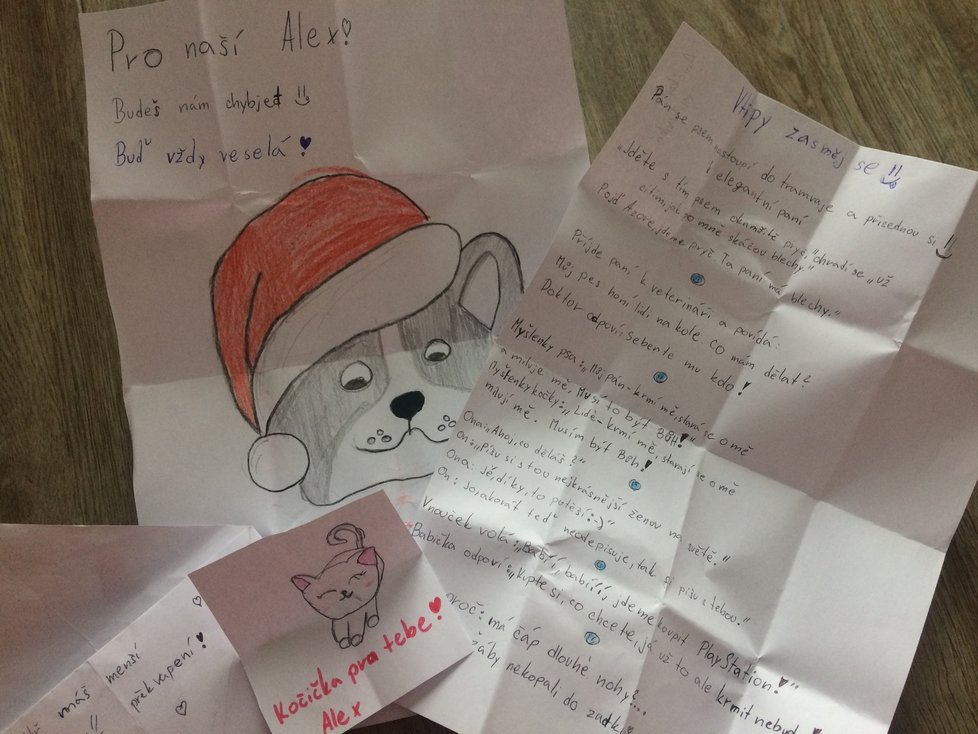 Pro naší Alex!
Budeš nám chybjet
Buď vždy veselá!
Vtipy zasměj se!!
Pán se psem nastoupí do tramvaje a přisednou si!!
i elegantní paní
„Jděte s tím psem okamžitě pryč," ohradí se „už
cítím, jak po mně skáčou blechy."
Pojď Azore, jdeme pryč. Ta paní má blechy."
Příjde paní k veterinári a povídá:
Můj pes honí lidi na kole. Co mám dělat?
Doktor odpoví: seberte mu kolo!
Myšlenky psa: „Můj pán - krmí mě, stará se o mě
a miluje mě, Musí to být Bůh!"
Myšlenky kočky: „Lidé - krmí mě, starají se o mě
milují mě. Musím být Bůh!
Ona: „Ahoj, co děláš?"
On: „Píšu si s tou nejkrásnější ženou na světě."
Ona: Jé, díky, to potěší :-)"
On: Jo, akorát teď neodepisuje, tak si píšu s tebou."
Vnouček volá: „Babííí, babííí, jdeme koupit PlayStation!"
Babička odpoví: „Kupte si, co chcete, já už to ale krmit nebudu!
proč: má čáp dlouhé nohy?...
žáby nekopali do zadku!
máš menší
překvapení!
Kočička pro tebe!
Alex